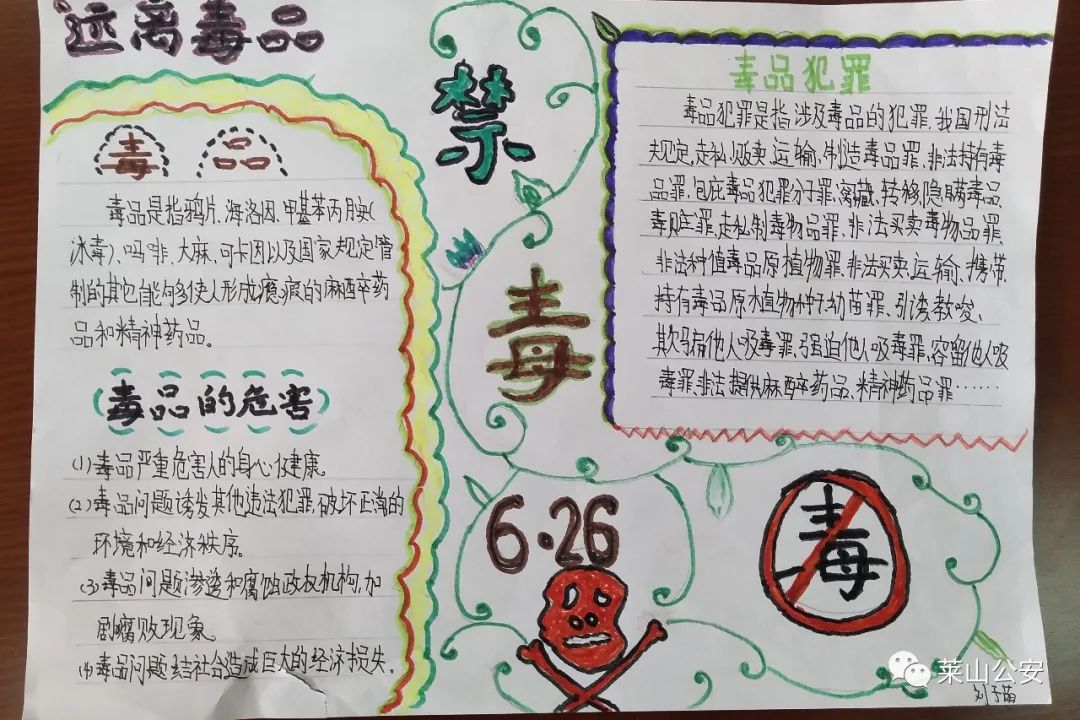 远离毒品
毒品
毒品是指鸦片、海洛因、甲基苯丙胺(
冰毒)、吗啡、大麻、可卡因以及国家规定管
制的其它能够使人形成瘾癖的麻醉药
品和精神药品。
毒品的危害
(1)毒品严重危害人的身心健康。
(2)毒品问题诱发其他违法犯罪,破坏正常的
环境和经济秩序。
(3)毒品问题渗透和腐蚀政权机构,加
剧腐败现象。
(4)毒品问题给社会造成巨大的经济损失。
禁
毒
6·26
毒品犯罪
毒品犯罪是指涉及毒品的犯罪,我国刑法
规定,走私、贩卖、运输、制造毒品罪、非法持有毒
品罪、包庇毒品犯罪分子罪、窝藏、转移、隐瞒毒品、
毒赃罪、走私制毒物品罪、非法买卖毒物品罪、
非法种值毒品原植物罪、非法买卖、运输、携带、
持有毒品原植物种子、幼苗罪、引诱、教唆、
欺骗他人吸毒罪、强迫他人吸毒罪、容留他人吸
毒罪、非法提供麻醉药品、精神药品罪……
毒
莱山公安